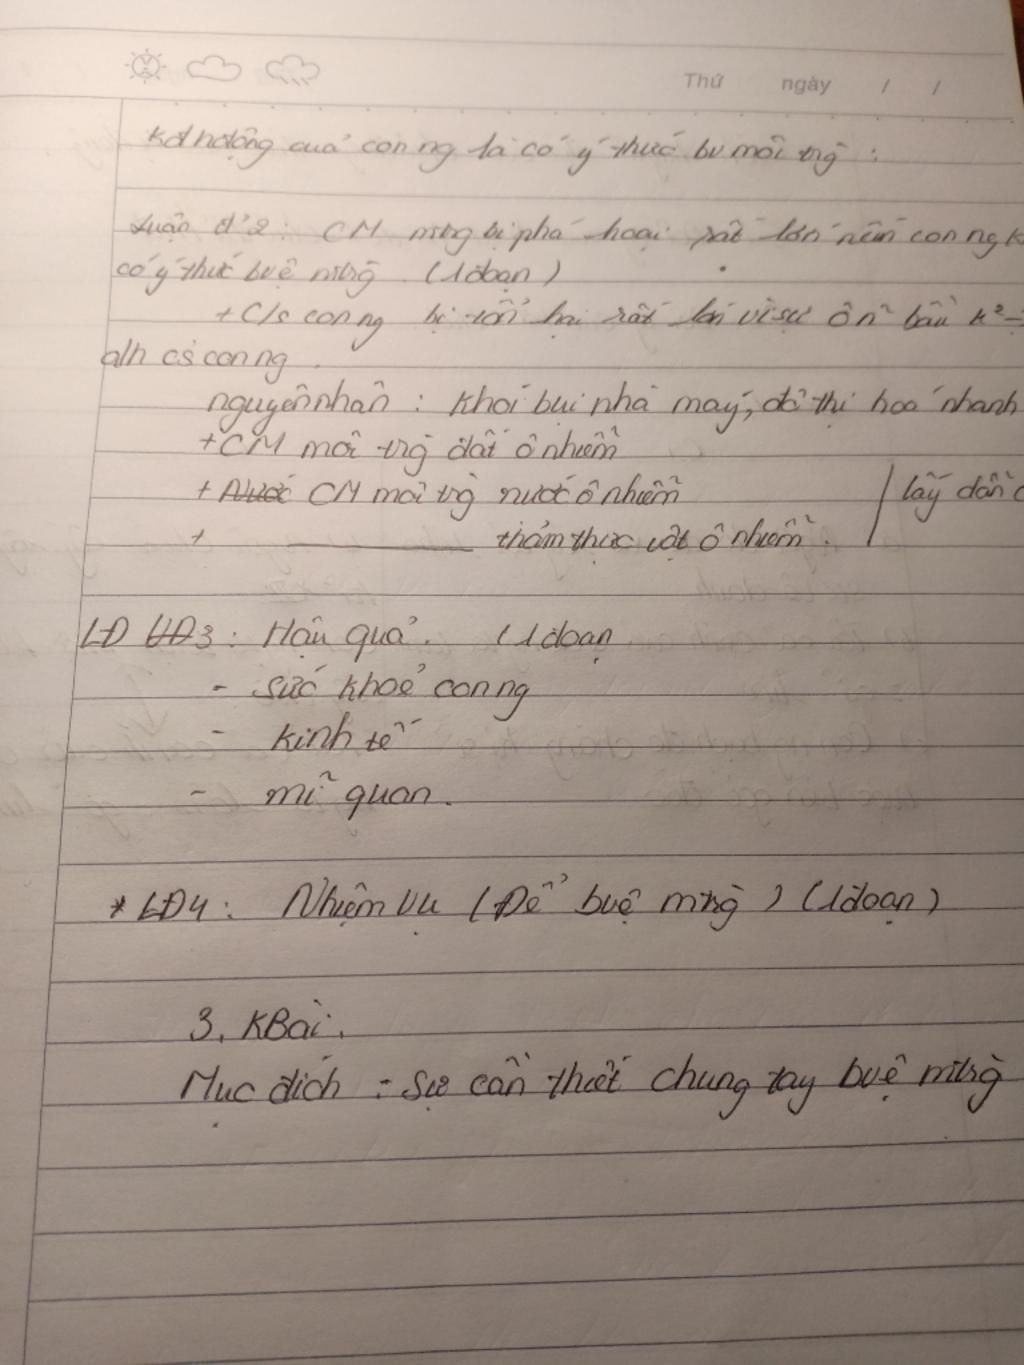 Thứ ngày / /
hđộng của con ng là có ý thức bv môi trg :
Luận đ' 2 : CM mtrg bị phá hoại rất lớn nên con ng k
có ý thức bvệ mtrg (1 đoạn)
+ C/s con ng bị tổn hại rất lớn vì sự ô n bầu k² →
ảh cs con ng .
nguyên nhân : khói bụi nhà máy, đô thị hoá nhanh
+ CM môi trg đất ô nhiễm
+ Nước CM môi trg nước ô nhiễm lấy dẫn c
+ ——— thảm thực vật ô nhiễm .
LĐ LĐ3 : Hậu quả . (1 đoạn
- sức khoẻ con ng
- kinh tế
- mĩ quan .
* LĐ4 : Nhiệm vụ (Để bvệ mtrg) (1 đoạn)
3, KBài .
Mục đích : Sự cần thiết chung tay bvệ mtrg